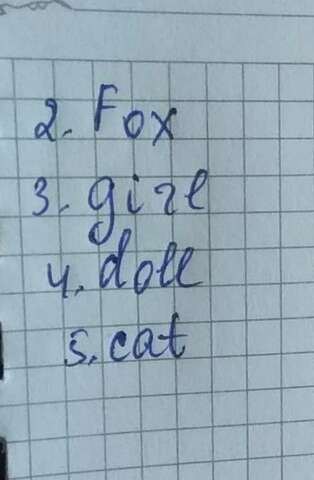 2. Fox
3. girl
4. doll
5. cat